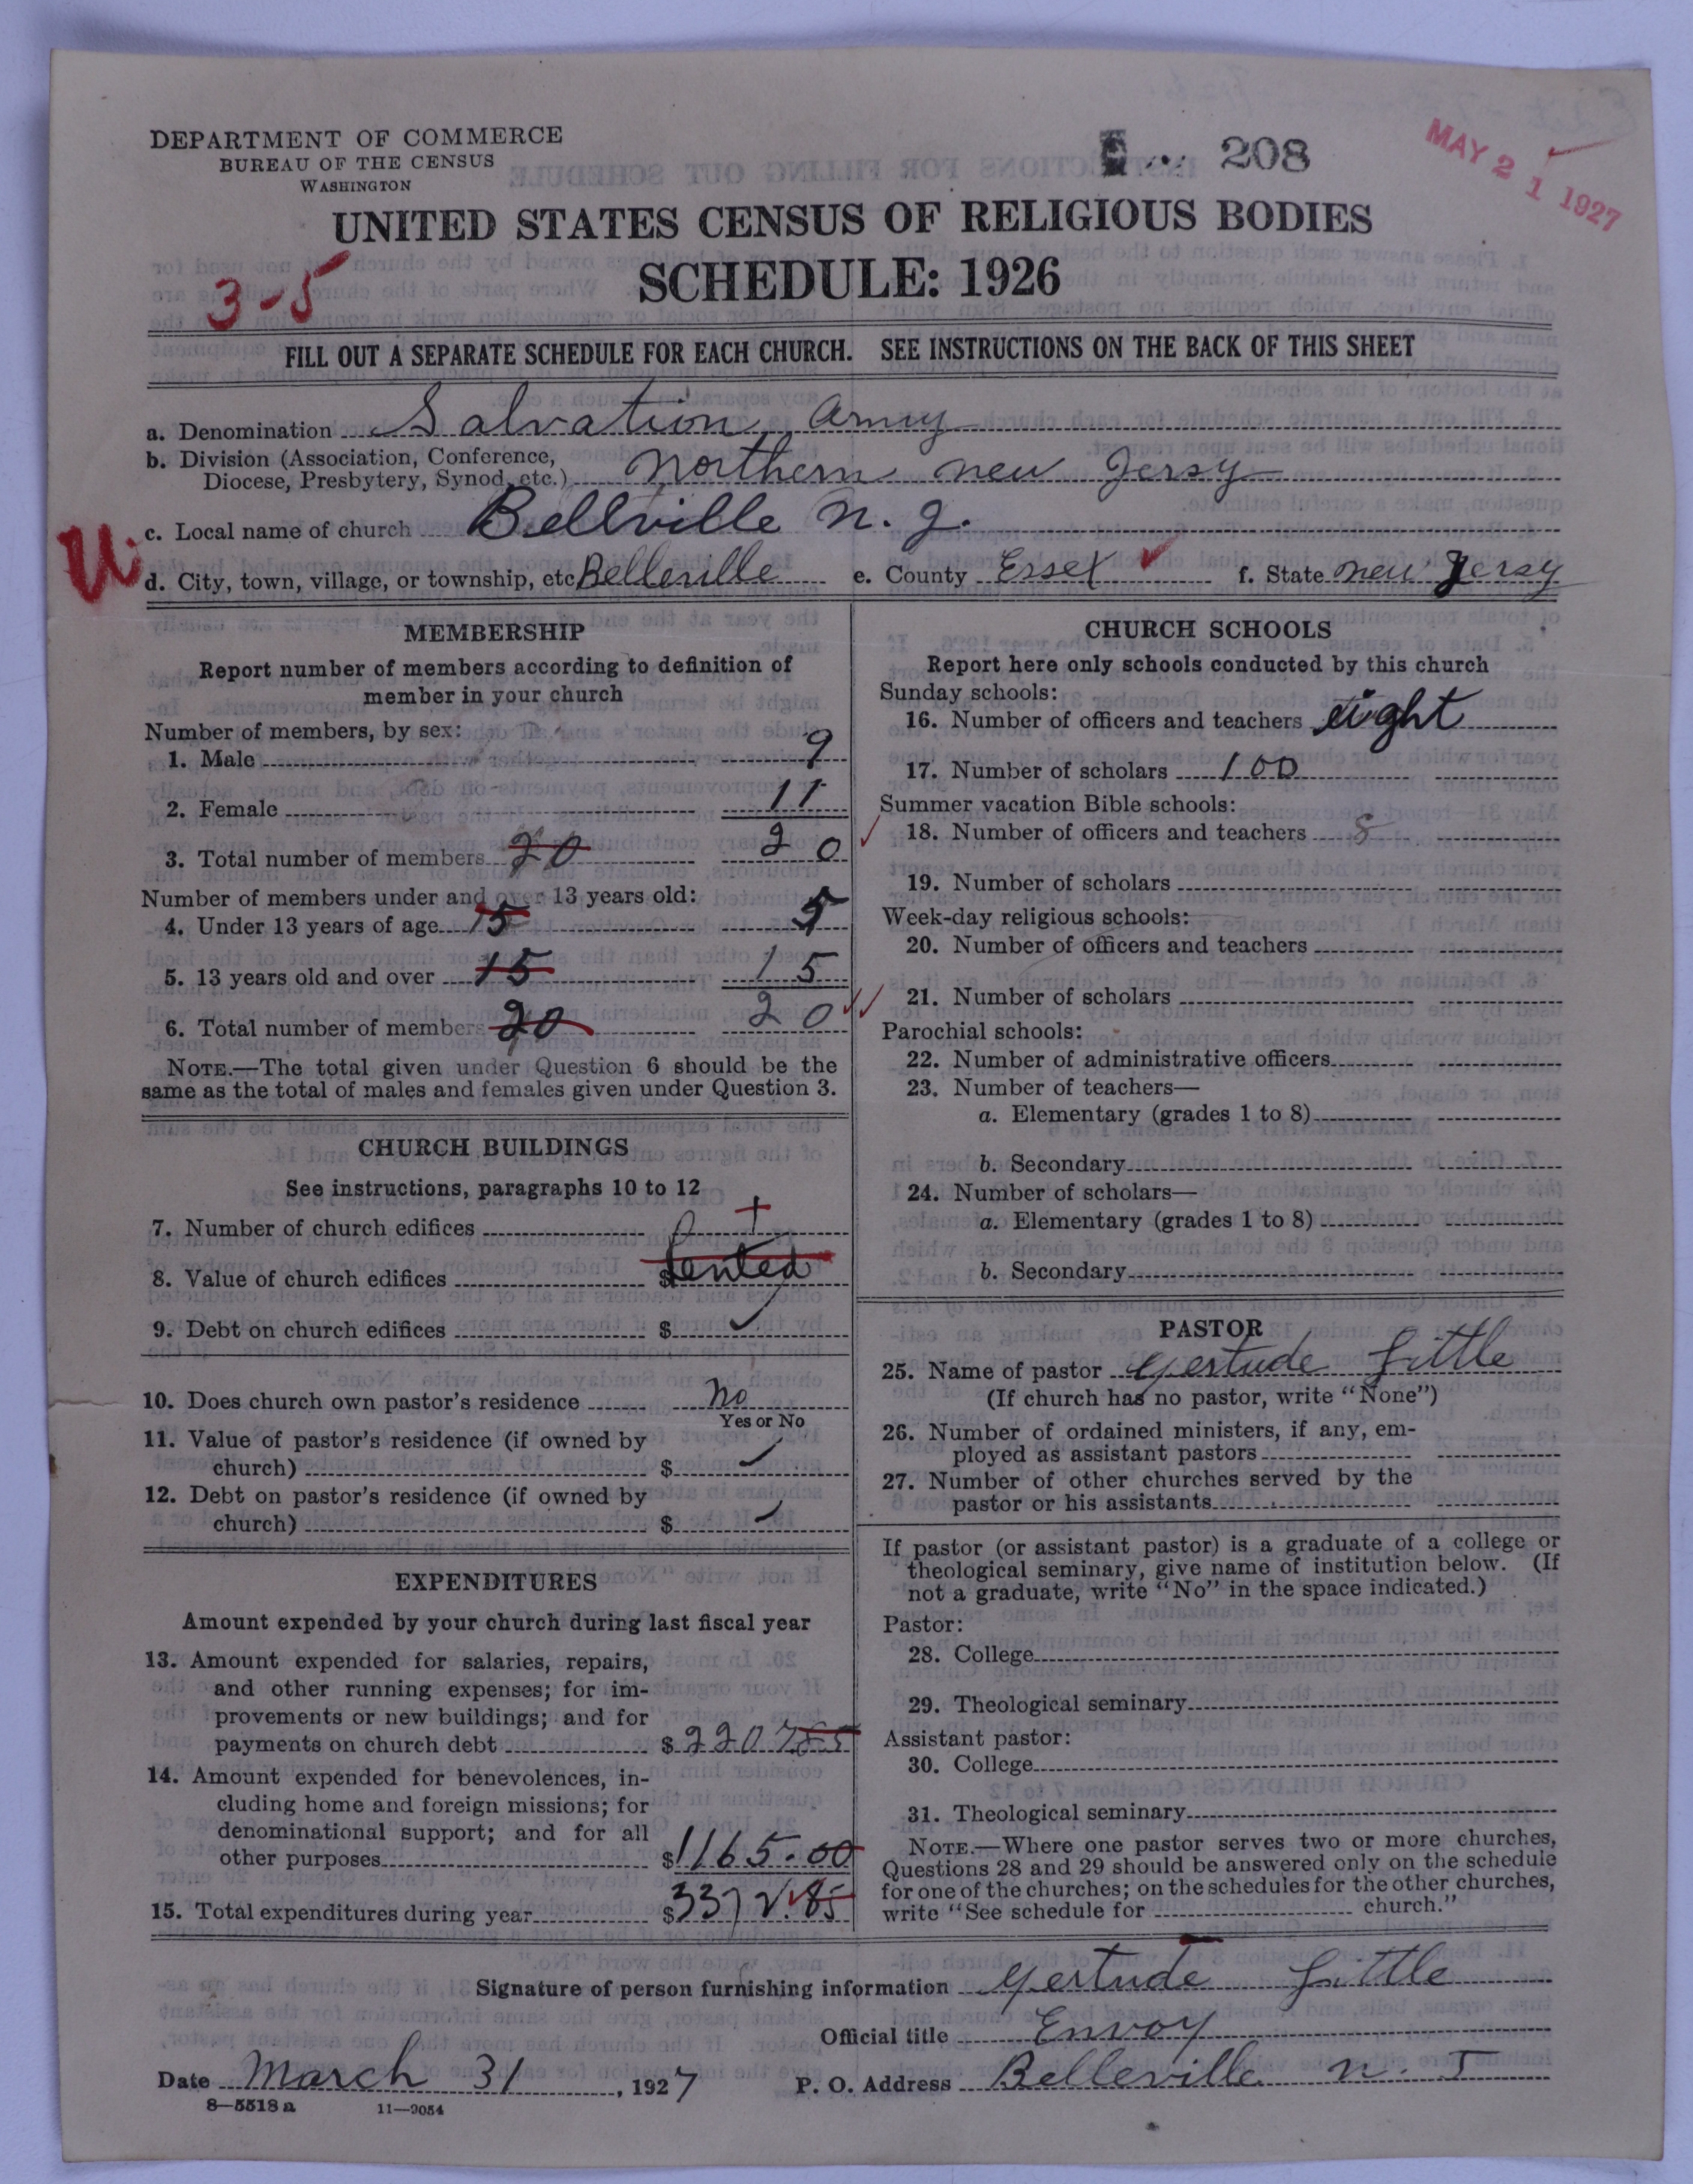 DEPARTMENT OF COMMERCE
BUREAU OF THE CENSUS
WASHINGTON
208
MAY 21 1927
UNITED STATES CENSUS OF RELIGIOUS BODIES
SCHEDULE: 1926
3-5
FILL OUT A SEPARATE SCHEDULE FOR EACH CHURCH. SEE INSTRUCTIONS ON THE BACK OF THIS SHEET
a. Denomination Salvation Army
b. Division (Association, Conference,
Diocese, Presbytery, Synod, etc.) Northern New Jersy
c. Local name of church Bellville N. J.
U
d. City, town, village, or township, etc Belleville e. County Essex f. State New Jersay
MEMBERSHIP
Report number of members according to definition of
member in your church
Number of members, by sex:
1. Male 9
2. Female 11
3. Total number of members 20 20
Number of members under and over 13 years old:
4. Under 13 years of age 15 5
5. 13 years old and over 15 15
6. Total number of members 20 20
NOTE.—The total given under Question 6 should be the
same as the total of males and females given under Question 3.
CHURCH BUILDINGS
See instructions, paragraphs 10 to 12
7. Number of church edifices
8. Value of church edifices $ Rented
9. Debt on church edifices $
10. Does church own pastor's residence No
Yes or No
11. Value of pastor's residence (if owned by
church) $
12. Debt on pastor's residence (if owned by
church) $
EXPENDITURES
Amount expended by your church during last fiscal year
13. Amount expended for salaries, repairs,
and other running expenses; for im-
provements or new buildings; and for
payments on church debt $ 220785
14. Amount expended for benevolences, in-
cluding home and foreign missions; for
denominational support; and for all
other purposes $ 1165.00
15. Total expenditures during year $ 3372.85
CHURCH SCHOOLS
Report here only schools conducted by this church
Sunday schools:
16. Number of officers and teachers eight
17. Number of scholars 100
Summer vacation Bible schools:
18. Number of officers and teachers 8
19. Number of scholars
Week-day religious schools:
20. Number of officers and teachers
21. Number of scholars
Parochial schools:
22. Number of administrative officers
23. Number of teachers—
a. Elementary (grades 1 to 8)
b. Secondary
24. Number of scholars—
a. Elementary (grades 1 to 8)
b. Secondary
PASTOR
25. Name of pastor Gertude Little
(If church has no pastor, write "None")
26. Number of ordained ministers, if any, em-
ployed as assistant pastors
27. Number of other churches served by the
pastor or his assistants
If pastor (or assistant pastor) is a graduate of a college or
theological seminary, give name of institution below. (If
not a graduate, write "No" in the space indicated.)
Pastor:
28. College
29. Theological seminary
Assistant pastor:
30. College
31. Theological seminary
NOTE.—Where one pastor serves two or more churches,
Questions 28 and 29 should be answered only on the schedule
for one of the churches; on the schedules for the other churches,
write "See schedule for church."
Signature of person furnishing information Gertude Little
Official title Envoy
Date March 31, 1927 P. O. Address Belleville N. J
8—5518a 11—9054